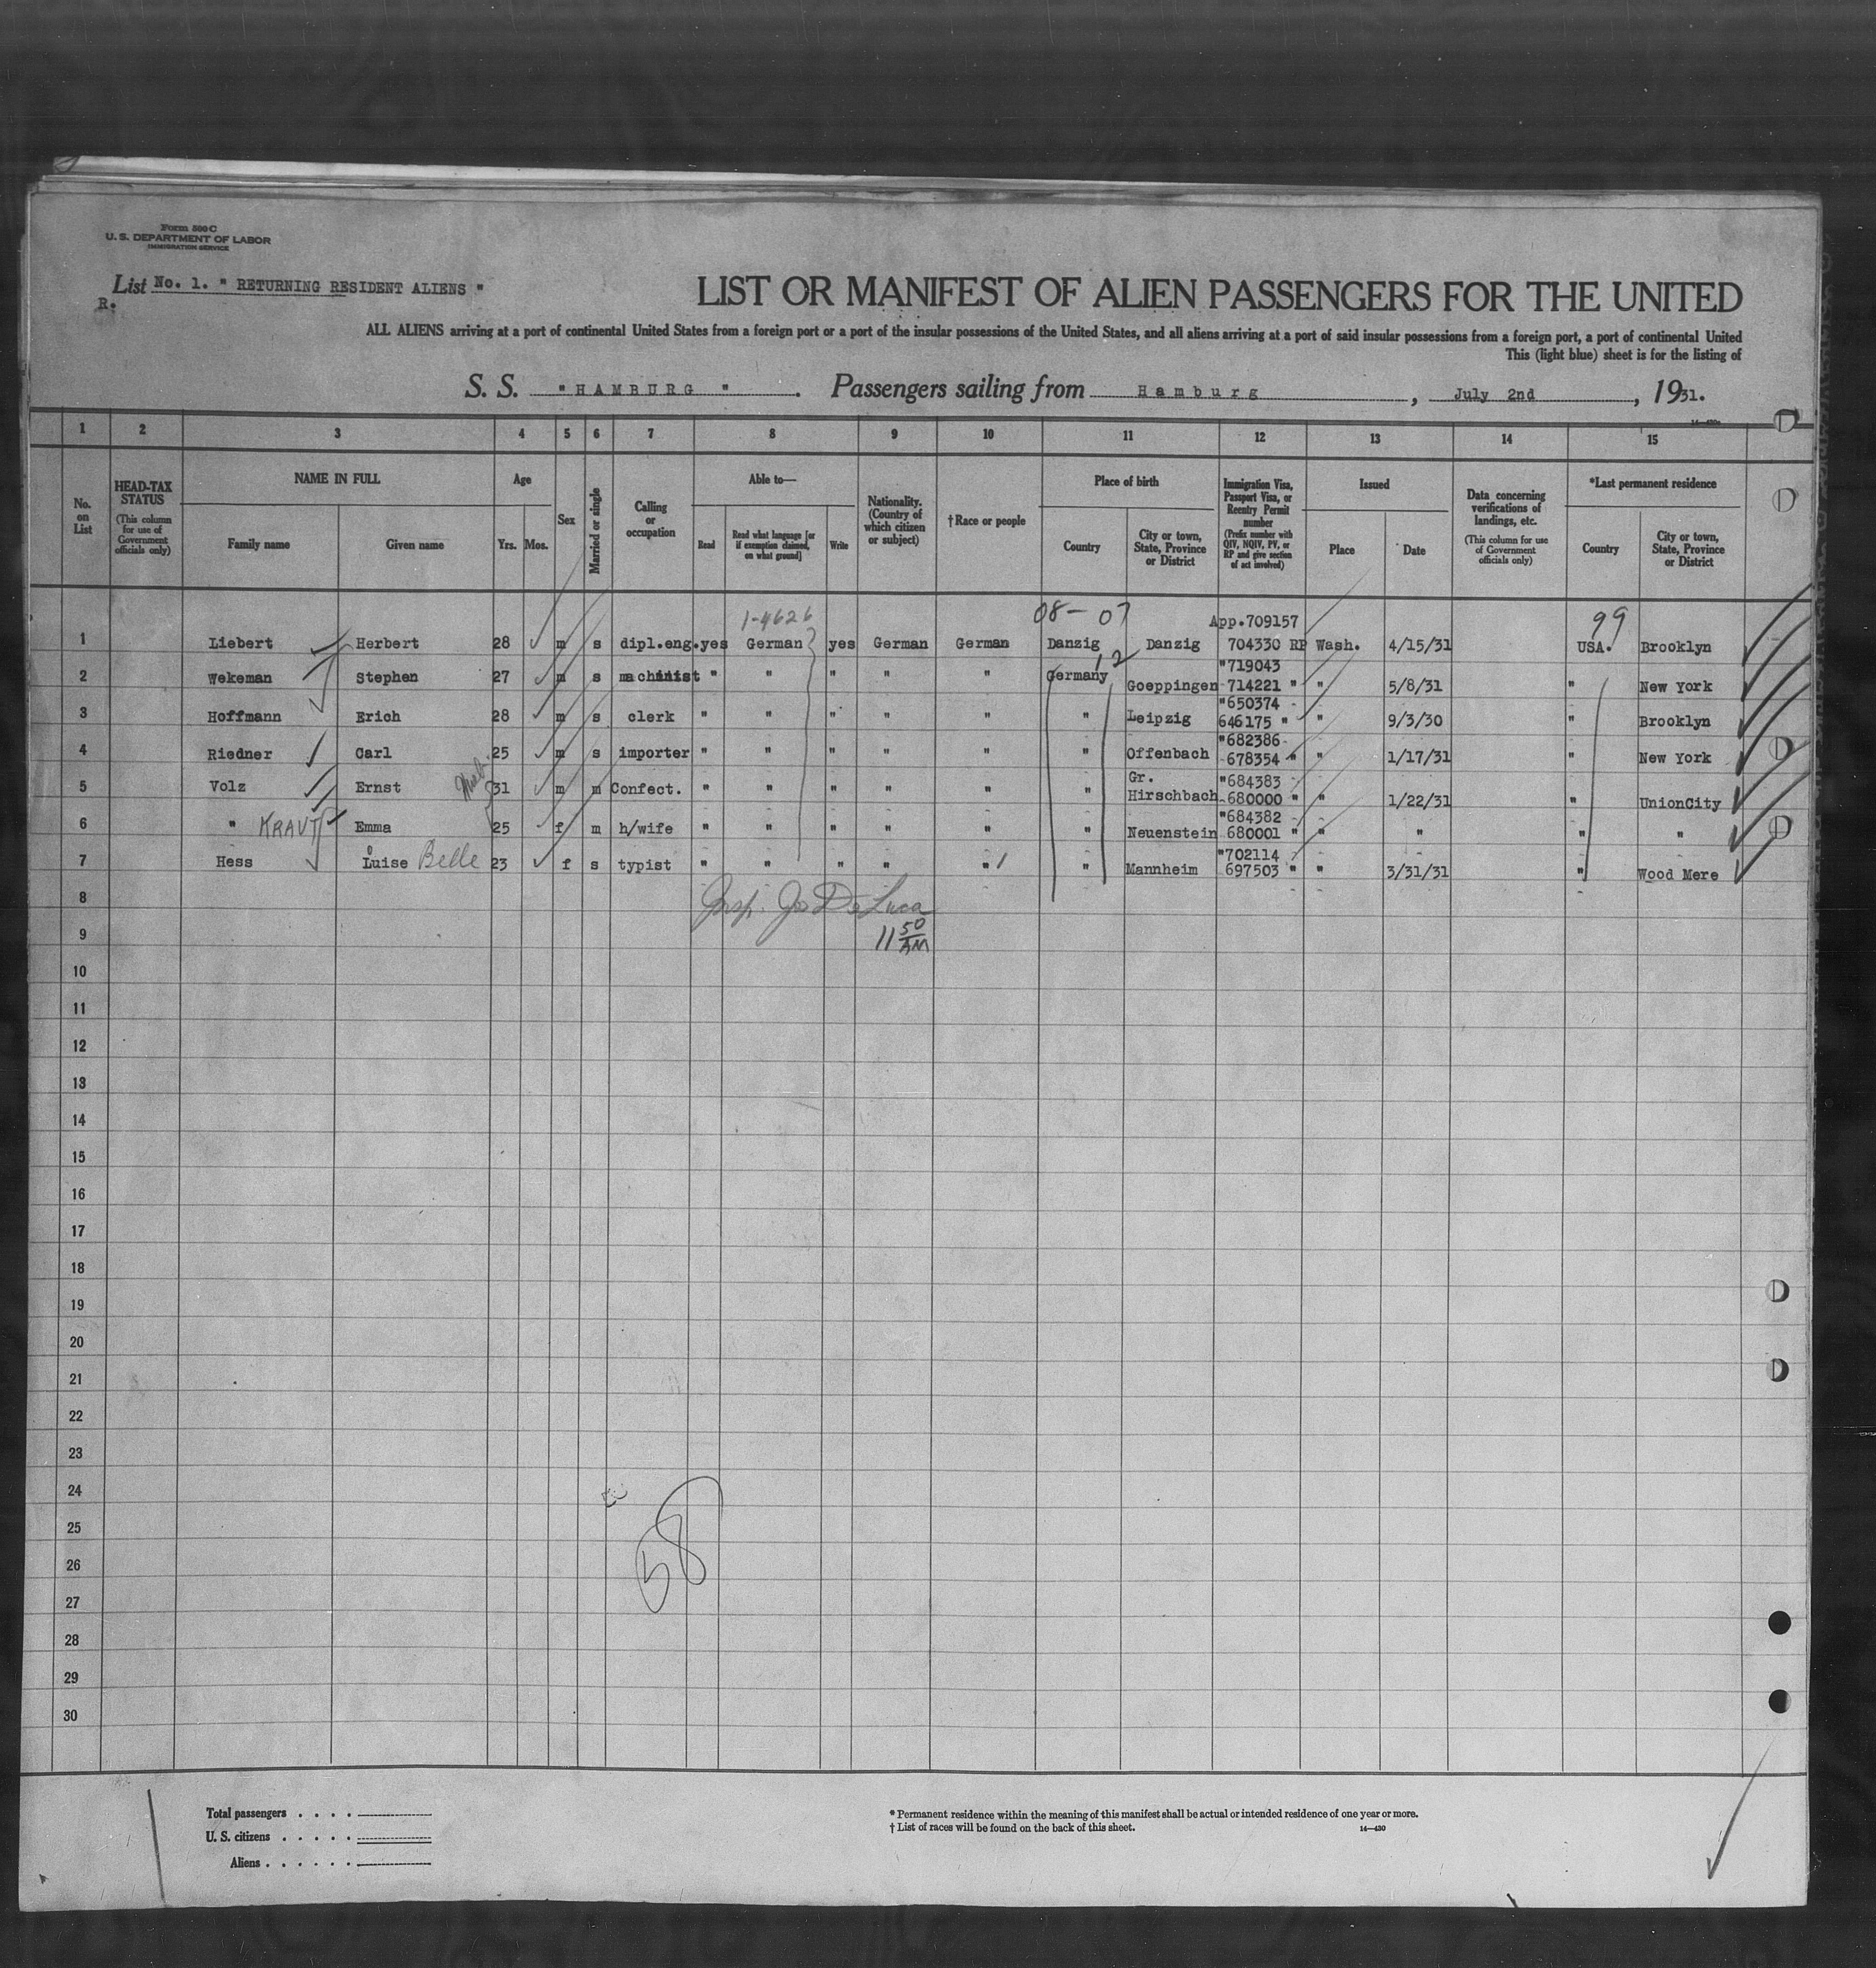 Form 500 C
U. S. DEPARTMENT OF LABOR
IMMIGRATION SERVICE
List No. 1. " RETURNING RESIDENT ALIENS "
R.
LIST OR MANIFEST OF ALIEN PASSENGERS FOR THE UNITED
ALL ALIENS arriving at a port of continental United States from a foreign port or a port of the insular possessions of the United States, and all aliens arriving at a port of said insular possessions from a foreign port, a port of continental United
This (light blue) sheet is for the listing of
S. S. " HAMBURG " . Passengers sailing from Hamburg , July 2nd , 1931.
1 2 3 4 5 6 7 8 9 10 11 12 13 14 15
No. on List
HEAD-TAX STATUS (This column for use of Government officials only)
NAME IN FULL Family name Given name
Age Yrs. Mos.
Sex
Married or single
Calling or occupation
Able to— Read Read what language [or if exemption claimed, on what ground] Write
Nationality. (Country of which citizen or subject)
†Race or people
Place of birth Country City or town, State, Province or District
Immigration Visa, Passport Visa, or Reentry Permit number (Prefix number with QIV, NQIV, PV, or RP and give section of act involved)
Issued Place Date
Data concerning verifications of landings, etc. (This column for use of Government officials only)
*Last permanent residence Country City or town, State, Province or District
1-4626 08- 07 App.709157 99
1 Liebert Herbert 28 m s dipl.eng. yes German yes German German Danzig Danzig 704330 RP Wash. 4/15/31 USA. Brooklyn
12 "719043
2 Wekeman Stephen 27 m s machinist " " " " " Germany Goeppingen 714221 " " 5/8/31 " New York
"650374
3 Hoffmann Erich 28 m s clerk " " " " " " Leipzig 646175 " " 9/3/30 " Brooklyn
"682386
4 Riedner Carl 25 m s importer " " " " " " Offenbach 678354 " " 1/17/31 " New York
Gr. "684383
5 Volz Ernst 31 m m Confect. " " " " " " Hirschbach 680000 " " 1/22/31 " UnionCity
"684382
6 " KRAUT Emma 25 f m h/wife " " " " " " Neuenstein 680001 " " " " "
"702114
7 Hess Luise Belle 23 f s typist " " " " " " Mannheim 697503 " " 3/31/31 " Wood Mere
8 Insp. Jos De Luca
9 11 50 AM
10
11
12
13
14
15
16
17
18
19
20
21
22
23
24
25 58
26
27
28
29
30
Total passengers . . . .
U. S. citizens . . . . .
Aliens . . . . . .
* Permanent residence within the meaning of this manifest shall be actual or intended residence of one year or more.
† List of races will be found on the back of this sheet. 14—430